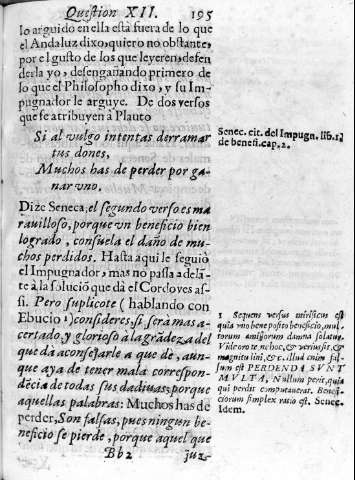 Question XII. 195
lo arguido en ella està fuera de lo que
el Andaluz dixo, quiero no obstante,
por el gusto de los que leyeren, defen
derla yo, desengañando primero de
lo que el Philosopho dixo, y su Im-
pugnador le arguye. De dos versos
que se atribuyen a Plauto
Si al vulgo intentas derramar
tus dones,
Muchos has de perder por ga-
nar vno.
Dize Seneca, el segundo verso es ma
rauilloso, porque vn beneficio bien
logrado, consuela el daño de mu-
chos perdidos. Hasta aqui le seguiò
el Impugnador, mas no passa adelã-
te à la soluciõ que dà el Cordoves as-
si. Pero suplicote (hablando con
Ebucio 1) consideres, si serà mas a-
certado, y glorioso à la grãdeza del
que dà aconsejarle a que dè, aun-
que aya de tener mala correspon-
dẽcia de todas sus dadiuas: porque
aquellas palabras: Muchos has de
perder, Son falsas, pues ningun be-
neficio se pierde, porque aquel que
Bb2 juz-
Senec. cit. del Impugn. lib. 1.
de benefi. cap. 2.
1 Sequens versus mirificus est
quia vno bene posito beneficio, mul-
torum amissorum damna solatur.
Vide oro te, ne hoc, & verius sit, &
magnitudini, & c. illud enim fal-
sum est PERDENDA SVNT
MVLTA, Nullum perit, quia
qui perdit computauerat. Benefi-
ciorum simplex ratio est. Senec.
Idem.